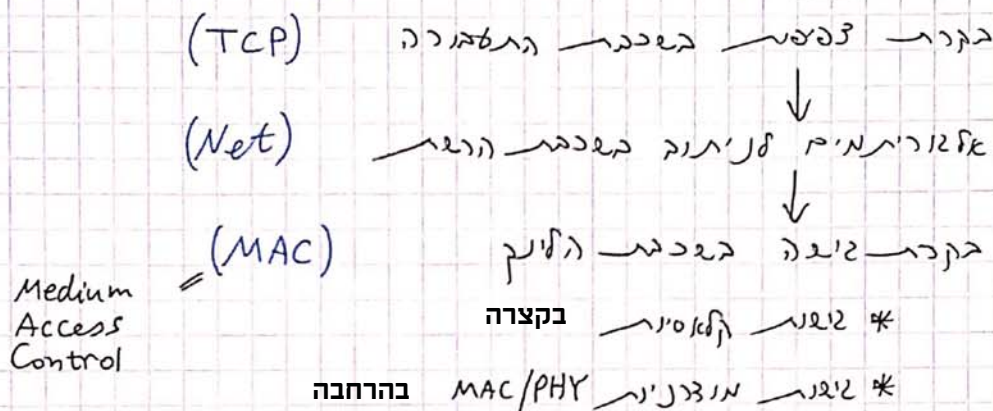 בקרת צפיפות בשכבת התעבורה (TCP)
אלגוריתמים לניתוב בשכבת הרשת (Net)
בקרת גישה בשכבת הלינק (MAC)
Medium
Access
Control
* גישות קלאסיות בקצרה
* גישות מודרניות MAC/PHY בהרחבה